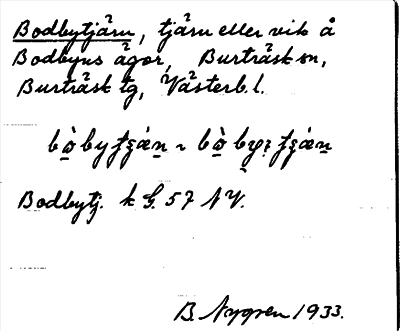 Bodbytjärn, tjärn eller vik å
Bodbyns ägor, Burträsk sn,
Burträsk tg, Västerb. l.
Bodbytj. k G. 57 NV.
B. Nygren 1933.